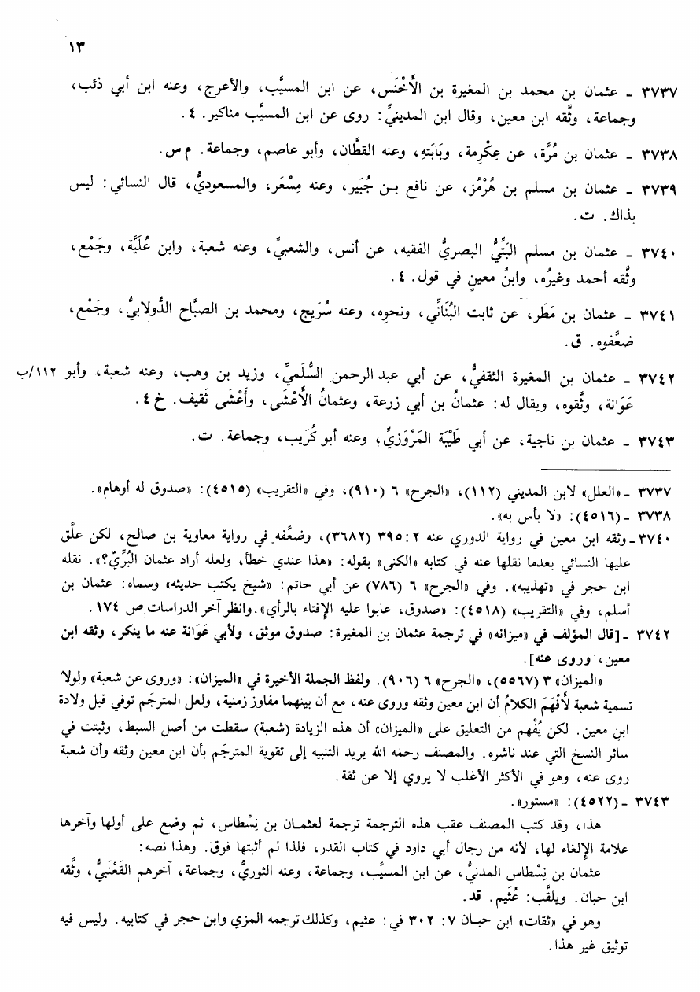 ١٣
٣٧٣٧ ـ عثمان بن محمد بن المغيرة بن الأَخْنَس، عن ابن المسيَّب، والأعرج، وعنه ابن أبي ذئب،
وجماعة، وثَّقه ابن معين، وقال ابن المدينيِّ: روى عن ابن المسيَّب مناكير. ٤.
٣٧٣٨ ـ عثمان بن مُرَّة، عن عِكْرِمة، وبَابَتِهِ، وعنه القطَّان، وأبو عاصم، وجماعة. م س.
٣٧٣٩ ـ عثمان بن مسلم بن هُرْمُز، عن نافع بـن جُبَير، وعنه مِسْعَر، والمـسعوديُّ، قال النسائي: ليس
بذاك. ت.
٣٧٤٠ ـ عثمان بن مسلم البَتِّيُّ البصريُّ الفقيه، عن أنس، والشعبيِّ، وعنه شعبة، وابن عُلَيَّة، وجَمْع،
وثَّقه أحمد وغيرُه، وابنُ معينٍ في قول. ٤.
٣٧٤١ ـ عثمان بن مَطَر، عن ثابت البُنَانِّي، ونحوِه، وعنه سُرَيج، ومحمد بن الصبَّاح الدُّولابيُّ، وجَمْع،
ضعَّفوه. ق.
٣٧٤٢ ـ عثمان بن المغيرة الثقفيُّ، عن أبي عبد الرحمن السُّلَميِّ، وزيد بن وهب، وعنه شعبة، وأبو ١١٢/ب
عَوَانة، وثَّقوه، ويقال له: عثمانُ بن أبي زرعة، وعثمانُ الأعْشَى، وأعْشَى ثقيف. خ ٤.
٣٧٤٣ ـ عثمان بن ناجية، عن أبي طَيْبَة المَرْوَزيِّ، وعنه أبو كُرَيب، وجماعة. ت.
٣٧٣٧ ـ «العلل» لابن المديني (١١٢)، «الجرح» ٦ (٩١٠)، وفي «التقريب» (٤٥١٥): «صدوق له أوهام».
٣٧٣٨ ـ (٤٥١٦): «لا بأس به».
٣٧٤٠ ـ وثقه ابن معين في رواية الدوري عنه ٢: ٣٩٥ (٣٦٨٢)، وضعَّفه في رواية معاوية بن صالح، لكن علَّق
عليها النسائي بعدما نقلها عنه في كتابه «الكنى» بقوله: «هذا عندي خطأ، ولعله أراد عثمان البُرِّيّ؟». نقله
ابن حجر في «تهذيبه». وفي «الجرح» ٦ (٧٨٦) عن أبي حاتم: «شيخ يكتب حديثه» وسماه: عثمان بن
أسلم، وفي «التقريب» (٤٥١٨): «صدوق، عابوا عليه الإفتاء بالرأي». وانظر آخر الدراسات ص ١٧٤.
٣٧٤٢ ـ [قال المؤلف في «ميزانه» في ترجمة عثمان بن المغيرة: صدوق موثق، ولأبي عَوَانة عنه ما ينكر، وثقه ابن
معين، وروى عنه].
«الميزان» ٣ (٥٥٦٧)، «الجرح» ٦ (٩٠٦). ولفظ الجملة الأخيرة في «الميزان»: «وروى عن شعبة» ولولا
تسمية شعبة لأَفْهَمَ الكلامُ أن ابن معين وثقه وروى عنه، مع أن بينهما مفاوز زمنية، ولعل المترجَم توفي قبل ولادة
ابن معين. لكن يُفْهم من التعليق على «الميزان» أن هذه الزيادة (شعبة) سقطت من أصل السبط، وثبتت في
سائر النسخ التي عند ناشره. والمصنف رحمه الله يريد التنبيه إلى تقوية المترجَم بأن ابن معين وثقه وأن شعبة
روى عنه، وهو في الأكثر الأغلب لا يروي إلا عن ثقة
٣٧٤٣ ـ (٤٥٢٢): «مستور».
هذا، وقد كتب المصنف عقب هذه الترجمة ترجمة لعثمـان بن نِسْطاس، ثم وضع على أولها وآخرها
علامة الإلغاء لها، لأنه من رجال أبي داود في كتاب القدر، فلذا لم أثبتها فوق. وهذا نصه:
عثمان بن نِسْطاس المدنيُّ، عن ابن المسيَّب، وجماعة، وعنه الثوريُّ، وجماعة، آخرهم القَعْنَبيُّ، وثَّقه
ابن حبان. ويلقَّب: عُثَيم. قد.
وهو في «ثقات» ابن حبـان ٧: ٣٠٢ في: عثيم، وكذلك ترجمه المزي وابن حجر في كتابيه. وليس فيه
توثيق غير هذا.